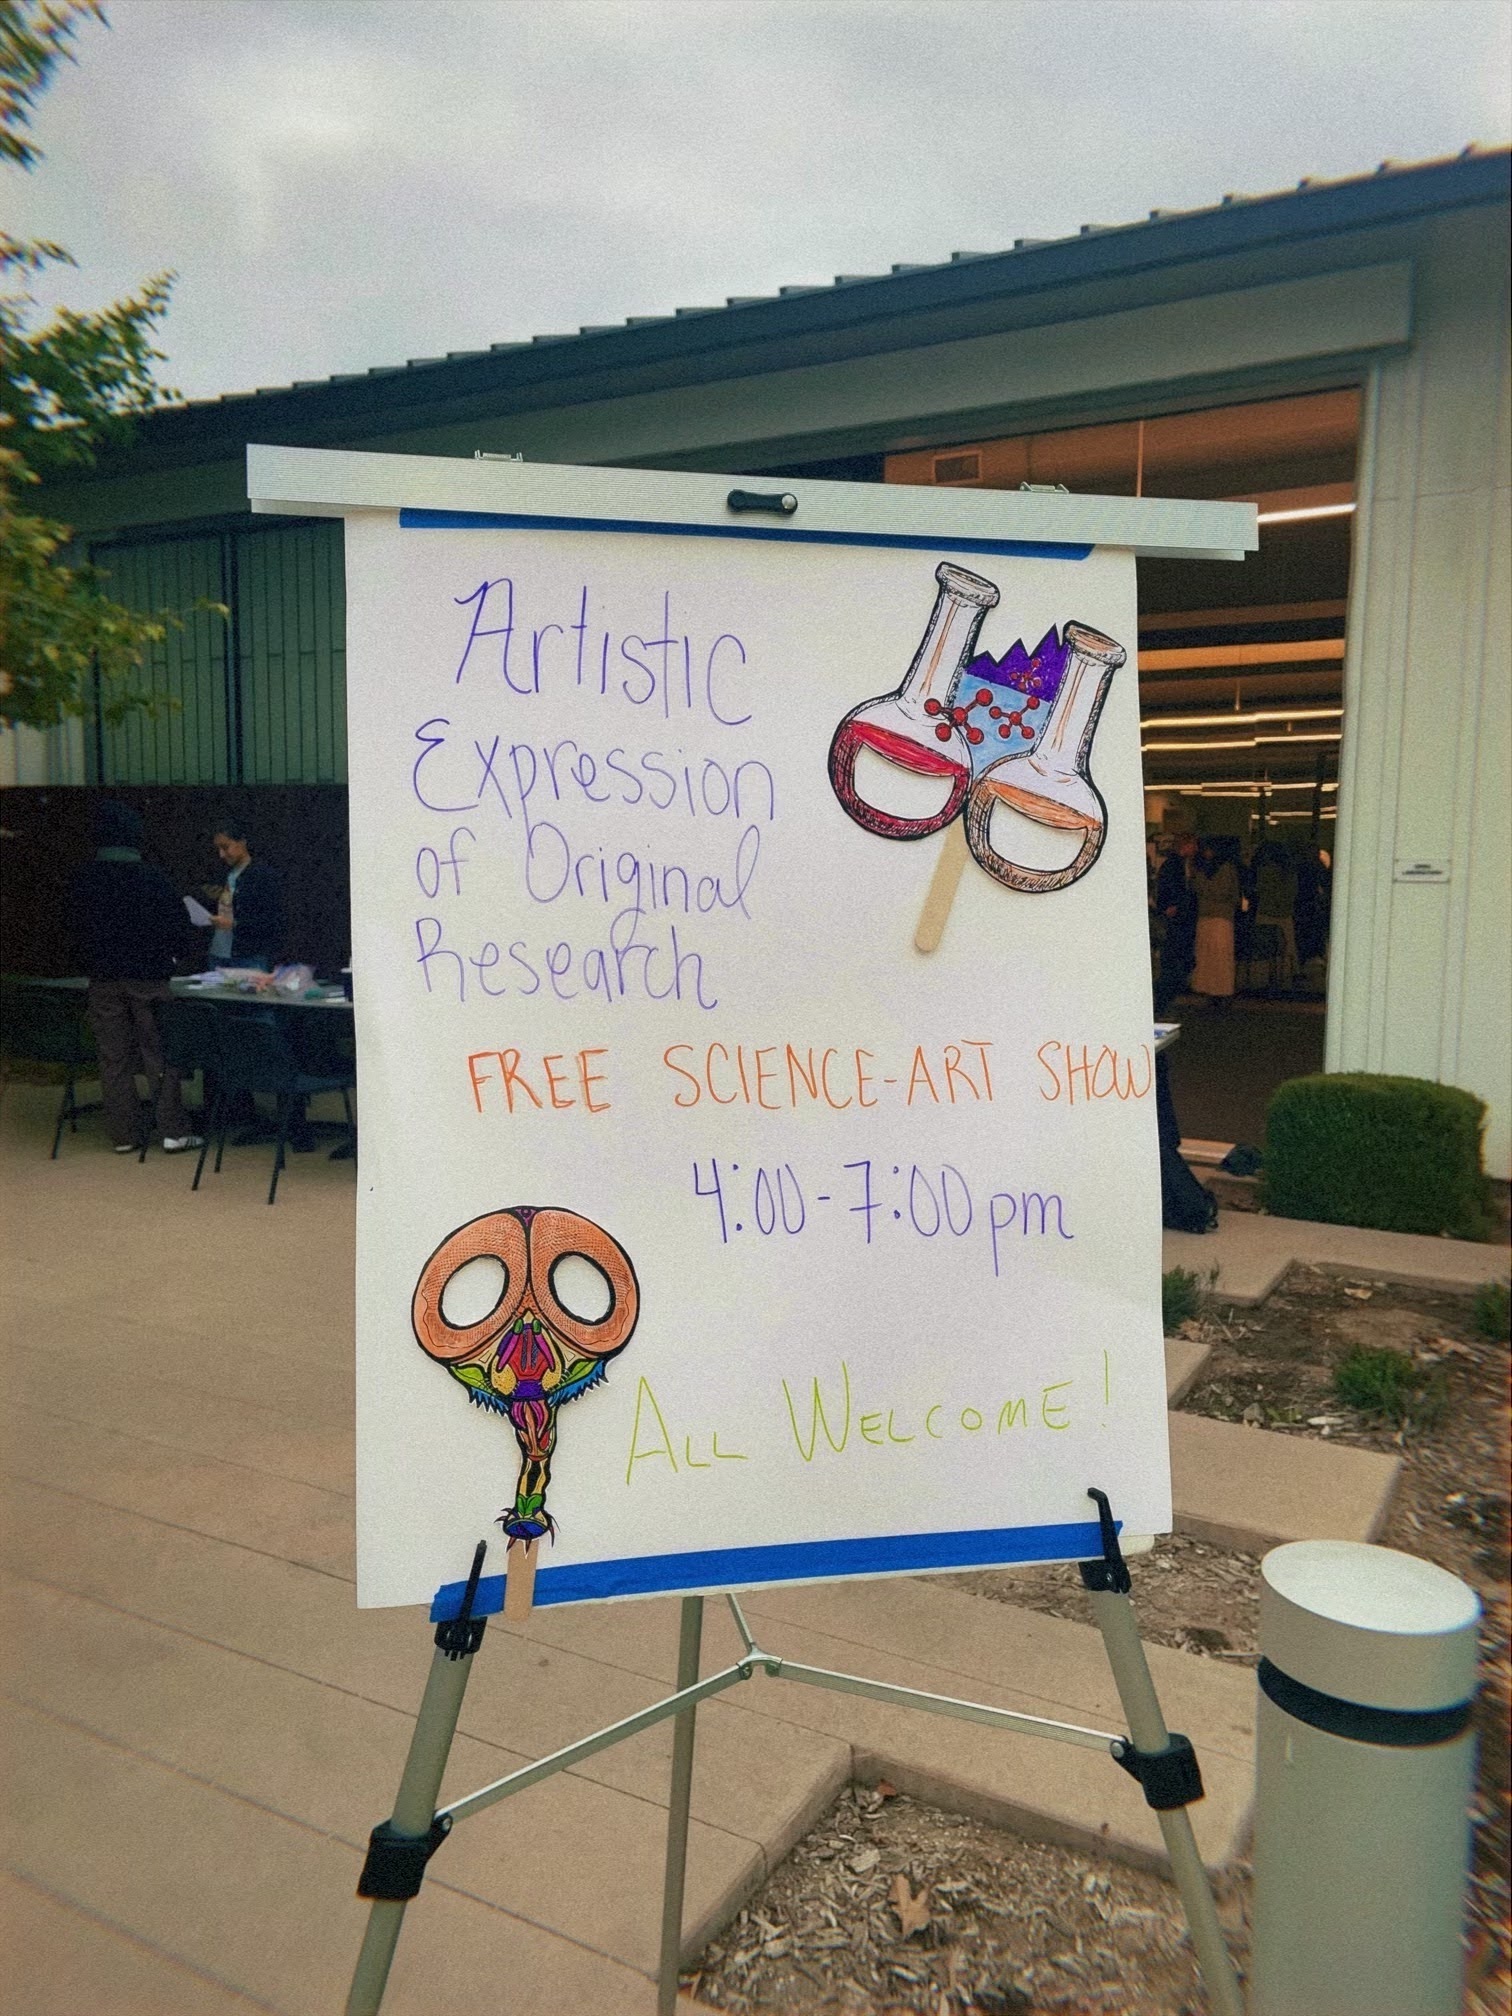 Artistic
Expression
of Original
Research
FREE SCIENCE-ART SHOW
4:00-7:00pm
ALL WELCOME!